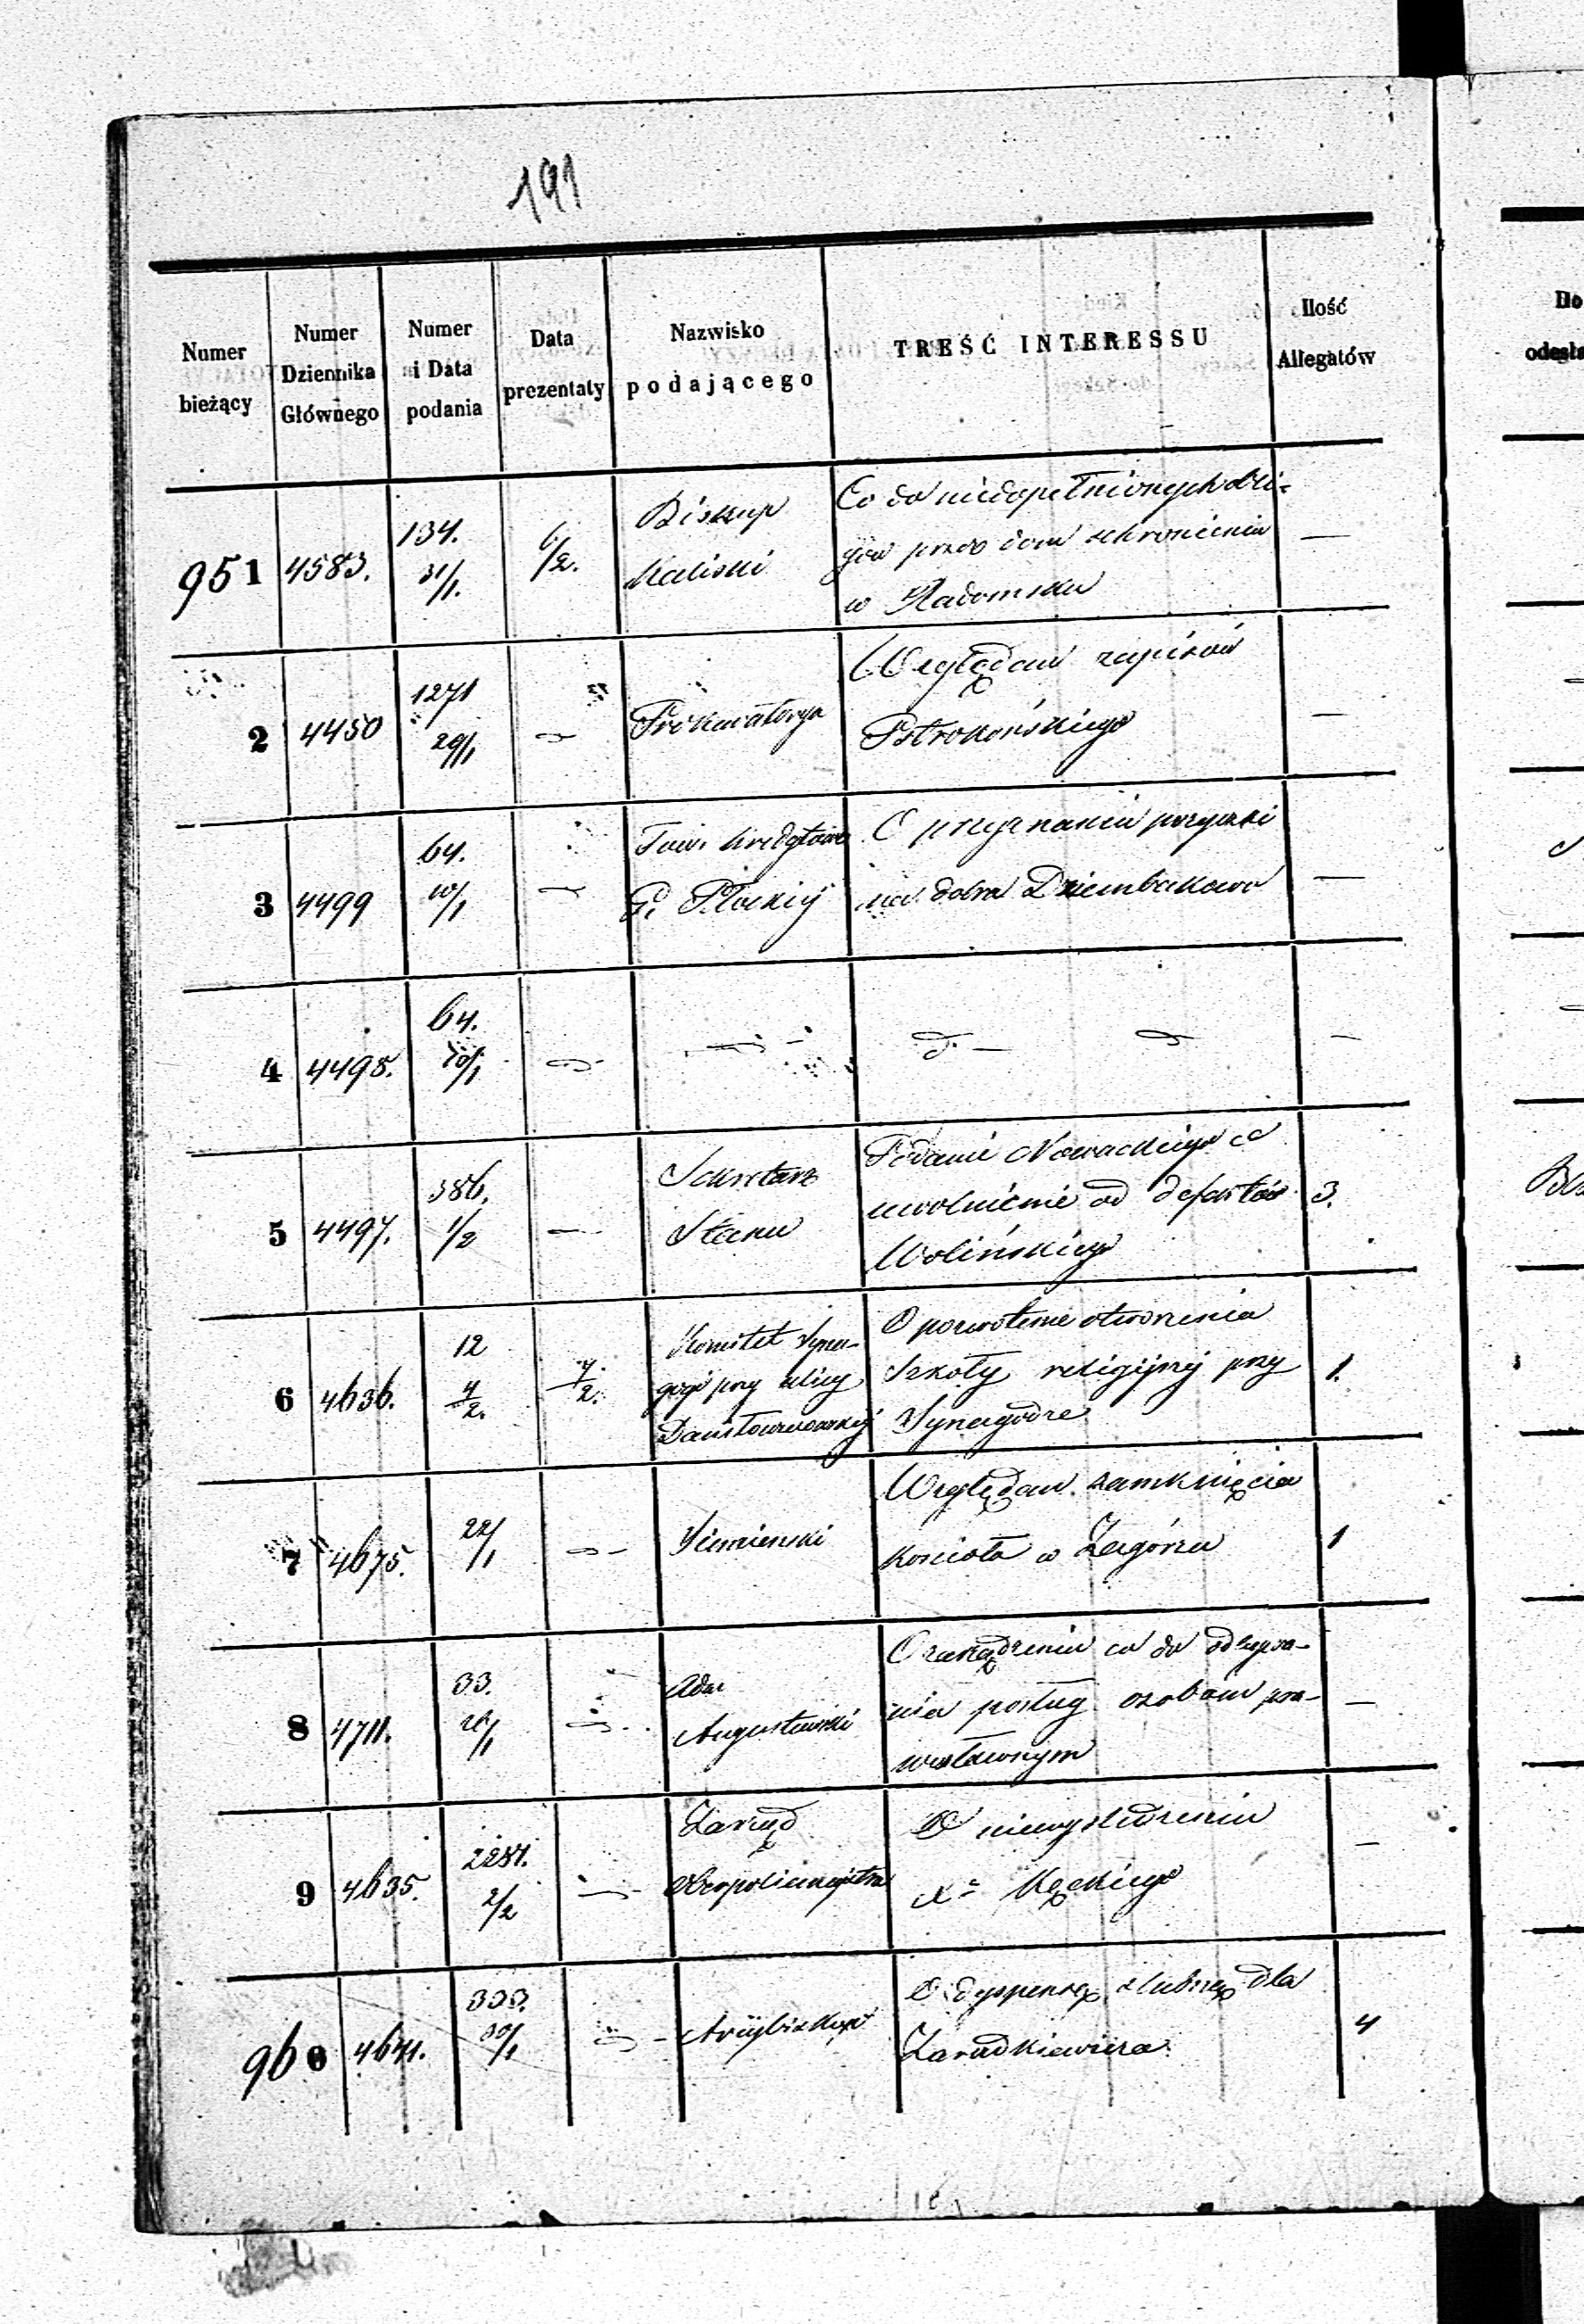 191
Numer bieżący
Numer Dziennika Głównego
Numer i Data podania
Data prezentaty
Nazwisko podającego
TREŚĆ INTERESSU
Ilość Allegatów
951 4583. 134. 31/1. 6/2. Biskup Kaliski
Co do niedopełnionych obli-
gów przez dom schronienia
w Radomsku —
2 4450 1271 29/1 Prokuratorya
Względem zapisów
Pstrokońskiego —
3 4499 64. 10/1 Tow. Kredytowe G. Płockiej
O przyznaniu pożyczki
na dobra Dziembakowo —
4 4498. 64. 10/1 — d. — —
5 4497. 386. 1/2 — Sekretarz Stanu
Podanie Nowackiego o
uwolnienie od defektów
Wolińskiego 3.
6 4636. 12 4/2. 7/2. Komitet Syna-
gogi przy ulicy
Daniłowiczowskiej
O pozwolenie otworzenia
Szkoły religijnej przy
Synagodze 1.
7 4675. 22/1 Siemieński
Względem zamknięcia
Kościoła w Zagórzu 1
8 4711. 33. 28/1 Adm Augustowski
O zarządzeniu co do
posług osobom pra-
wosławnym —
9 4635. 2281. 2/2 Zarząd Oberpolicmajstra
O niewyśledzeniu
Xa Kęckiego —
960 4641. 333. 30/1 Arcybiskup
O dyspensę ślubną dla
Zarudkiewicza 4
Do
odesła